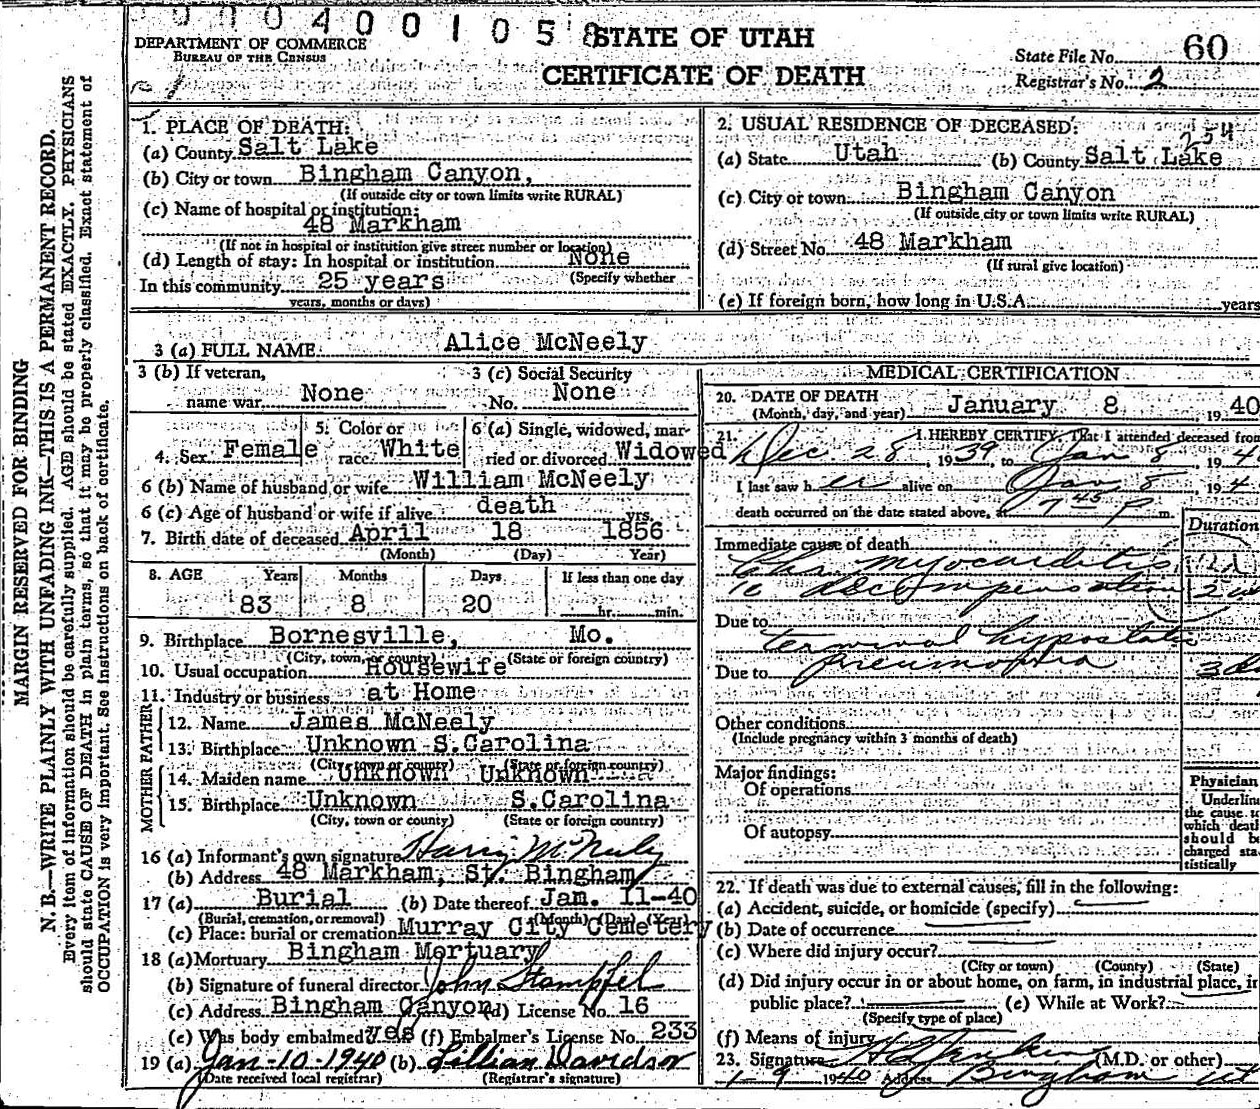 9 0 0 4 0 0 1 0 5 8
STATE OF UTAH
DEPARTMENT OF COMMERCE
BUREAU OF THE CENSUS
CERTIFICATE OF DEATH
State File No. 60
Registrar's No. 2
MARGIN RESERVED FOR BINDING
N. B.—WRITE PLAINLY WITH UNFADING INK—THIS IS A PERMANENT RECORD.
Every item of information should be carefully supplied. AGE should be stated EXACTLY. PHYSICIANS
should state CAUSE OF DEATH in plain terms, so that it may be properly classified. Exact statement of
OCCUPATION is very important. See instructions on back of certificate.
1. PLACE OF DEATH:
(a) County Salt Lake
(b) City or town Bingham Canyon,
(If outside city or town limits write RURAL)
(c) Name of hospital or institution:
48 Markham
(If not in hospital or institution give street number or location)
(d) Length of stay: In hospital or institution None
(Specify whether
In this community 25 years
years, months or days)
2. USUAL RESIDENCE OF DECEASED:
254
(a) State Utah (b) County Salt Lake
(c) City or town Bingham Canyon
(If outside city or town limits write RURAL)
(d) Street No. 48 Markham
(If rural give location)
(e) If foreign born, how long in U.S.A. years
3 (a) FULL NAME Alice McNeely
3 (b) If veteran, 3 (c) Social Security
name war None No. None
5. Color or 6 (a) Single, widowed, mar-
4. Sex Female race White ried or divorced Widowed
6 (b) Name of husband or wife William McNeely
6 (c) Age of husband or wife if alive death yrs.
7. Birth date of deceased April 18 1856
(Month) (Day) Year)
8. AGE Years Months Days If less than one day
83 8 20 hr. min.
9. Birthplace Bornesville, Mo.
(City, town, or county) (State or foreign country)
10. Usual occupation Housewife
11. Industry or business at Home
FATHER
12. Name James McNeely
13. Birthplace Unknown S.Carolina
(City, town or county) (State or foreign country)
MOTHER
14. Maiden name Unknown Unknown
15. Birthplace Unknown S.Carolina
(City, town or county) (State or foreign country)
16 (a) Informant's own signature Harry McNeely
(b) Address 48 Markham, St. Bingham
17 (a) Burial (b) Date thereof Jan. 11-40
(Burial, cremation, or removal) (Month) (Day) (Year)
(c) Place: burial or cremation Murray City Cemetery
18 (a) Mortuary Bingham Mortuary
(b) Signature of funeral director John Stampfel
(c) Address Bingham Canyon (d) License No. 16
(e) Was body embalmed? yes (f) Embalmer's License No. 233
19 (a) Jan-10-1940 (b) Lillian Davidson
(Date received local registrar) (Registrar's signature)
MEDICAL CERTIFICATION
20. DATE OF DEATH
(Month, day, and year) January 8 , 1940
21. I HEREBY CERTIFY, That I attended deceased from
Dec 28 , 1939, to Jan 8 , 194
I last saw her alive on Jan 8 , 194
death occurred on the date stated above, at 7 45 P. m.
Duration
Immediate cause of death
Chr. myocarditis
decompensation
Due to
terminal hypostatic
Due to pneumonia 3
Other conditions
(Include pregnancy within 3 months of death)
Major findings:
Of operations
Of autopsy
Physician
Underline
the cause to
which death
should be
charged sta-
tistically
22. If death was due to external causes, fill in the following:
(a) Accident, suicide, or homicide (specify)
(b) Date of occurrence
(c) Where did injury occur?
(City or town) (County) (State)
(d) Did injury occur in or about home, on farm, in industrial place, in
public place? (e) While at Work?
(Specify type of place)
(f) Means of injury
23. Signature (M.D. or other)
1-9 1940 Address Bingham Ut